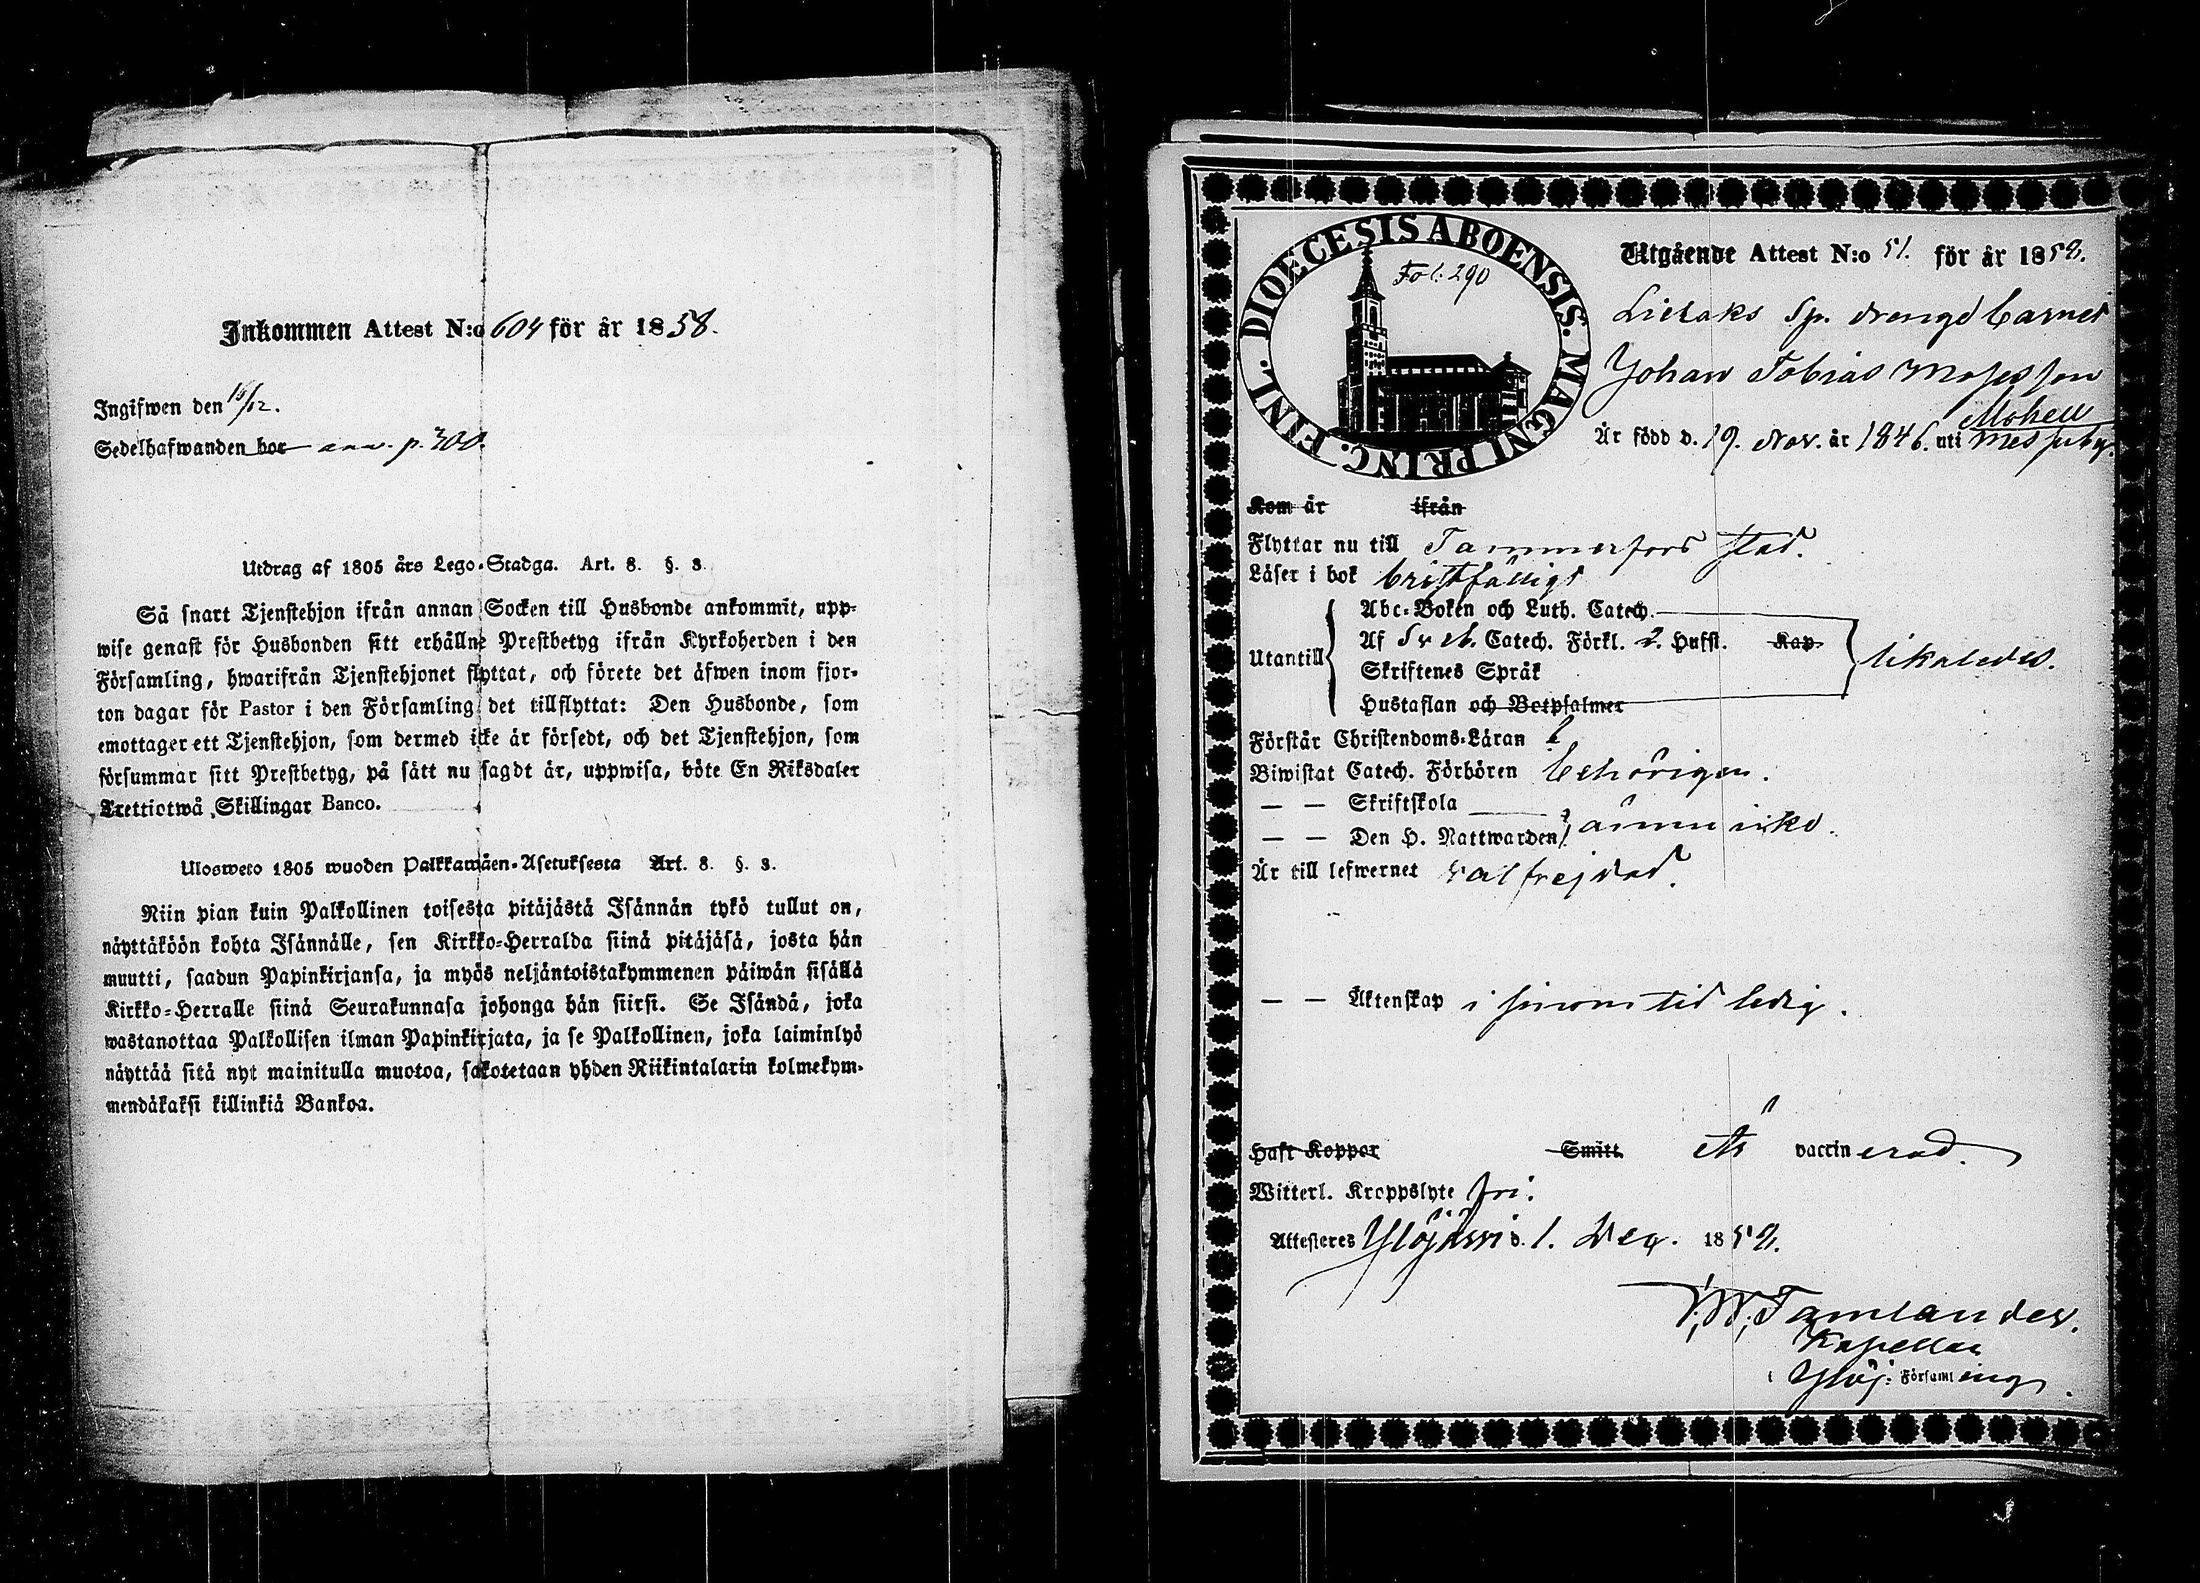 Inkommen Attest N:o 604 för år 1858.
Ingifwen den 15/12.
Sedelhafwanden bor ann. p. 300.
Utdrag af 1805 års Lego-Stadga. Art. 8. §. 3.
Så snart Tjenstehjon ifrån annan Socken till Husbonde ankommit, upp-
wise genast för Husbonden sitt erhållne Prestbetyg ifrån Kyrkoherden i den
Församling, hwarifrån Tjenstehjonet flyttat, och förete det äfwen inom fjor-
ton dagar för Pastor i den Församling det tillflyttat: Den Husbonde, som
emottager ett Tjenstehjon, som dermed icke är försedt, och det Tjenstehjon, som
försummar sitt Prestbetyg, på sätt nu sagdt är, uppwisa, böte En Riksdaler
Trettiotwå Skillingar Banco.
Ulosweto 1805 wuoden Palkkawäen-Asetuksesta Art. 8. §. 3.
Niin pian kuin Palkollinen toisesta pitäjästä Isännän tykö tullut on,
näyttäköön kohta Isännälle, sen Kirkko-Herralda siinä pitäjäsä, josta hän
muutti, saadun Papinkirjansa, ja myös neljäntoistakymmenen päiwän sisällä
Kirkko-Herralle siinä Seurakunnasa johonga hän siirsi. Se Isändä, joka
wastanottaa Palkollisen ilman Papinkirjata, ja se Palkollinen, joka laiminlyö
näyttää sitä nyt mainitulla muotoa, sakotetaan yhden Riikintalarin kolmekym-
mendäkaksi killinkiä Bankoa.
DIOECESIS ABOENSIS. MAGNI PRINC. FINL.
Fol: 290
Utgående Attest N:o 51. för år 1858.
Sp. drenge barnet
Johan Tobias Mosesson
Är född d. 19. Nov. år 1846. uti
Kom år ifrån
Flyttar nu till Tammerfors stad.
Läser i bok bristfälligt
Abc-Boken och Luth. Catech.
Utantill Af Sv eb. Catech. Förkl. 2. Hufst. Kap. likaledes.
Skriftenes Språk
Hustaflan och Botpsalmer
Förstår Christendoms-Läran
Biwistat Catech. Förhören behörigen.
— — Skriftskola
— — Den H. Nattwarden ännu icke.
Är till lefwernet välfrejdad.
— — Äktenskap i sinom tid ledig.
Haft Koppor Smitt är vaccinerad.
Witterl. Kroppslyte fri.
Attesteres Ylöjärvi d. 1. Dec. 1858.
Tamlander.
Kapellan
i Ylöj: Församling.